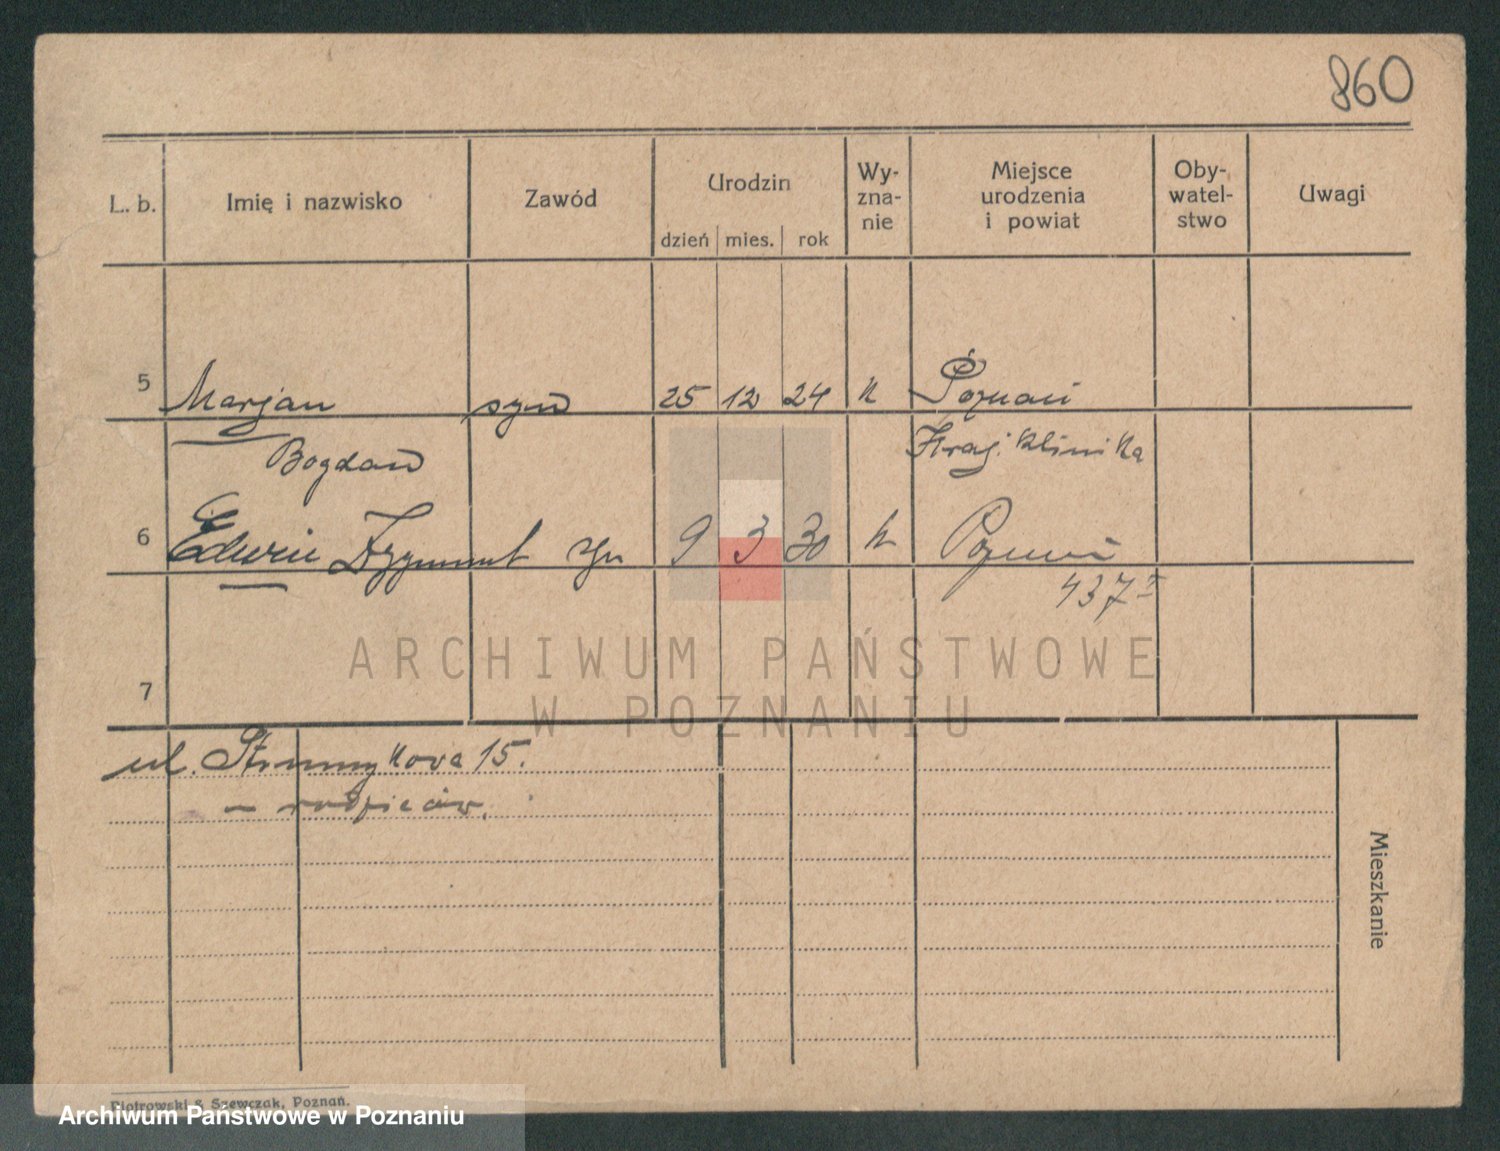 860
L. b. Imię i nazwisko Zawód Urodzin dzień mies. rok Wy-zna-nie Miejsce urodzenia i powiat Oby-watel-stwo Uwagi
5 Marjan syn 25 12 24 k Poznań
Bogdan Kraj. Klinika
6 Edwin Zygmunt syn 9 3 30 k Poznań
437
7
ARCHIWUM PAŃSTWOWE
W POZNANIU
ul. Strumykowa 15.
– rodziców.
Mieszkanie
Piotrowski & Szewczak, Poznań.
Archiwum Państwowe w Poznaniu